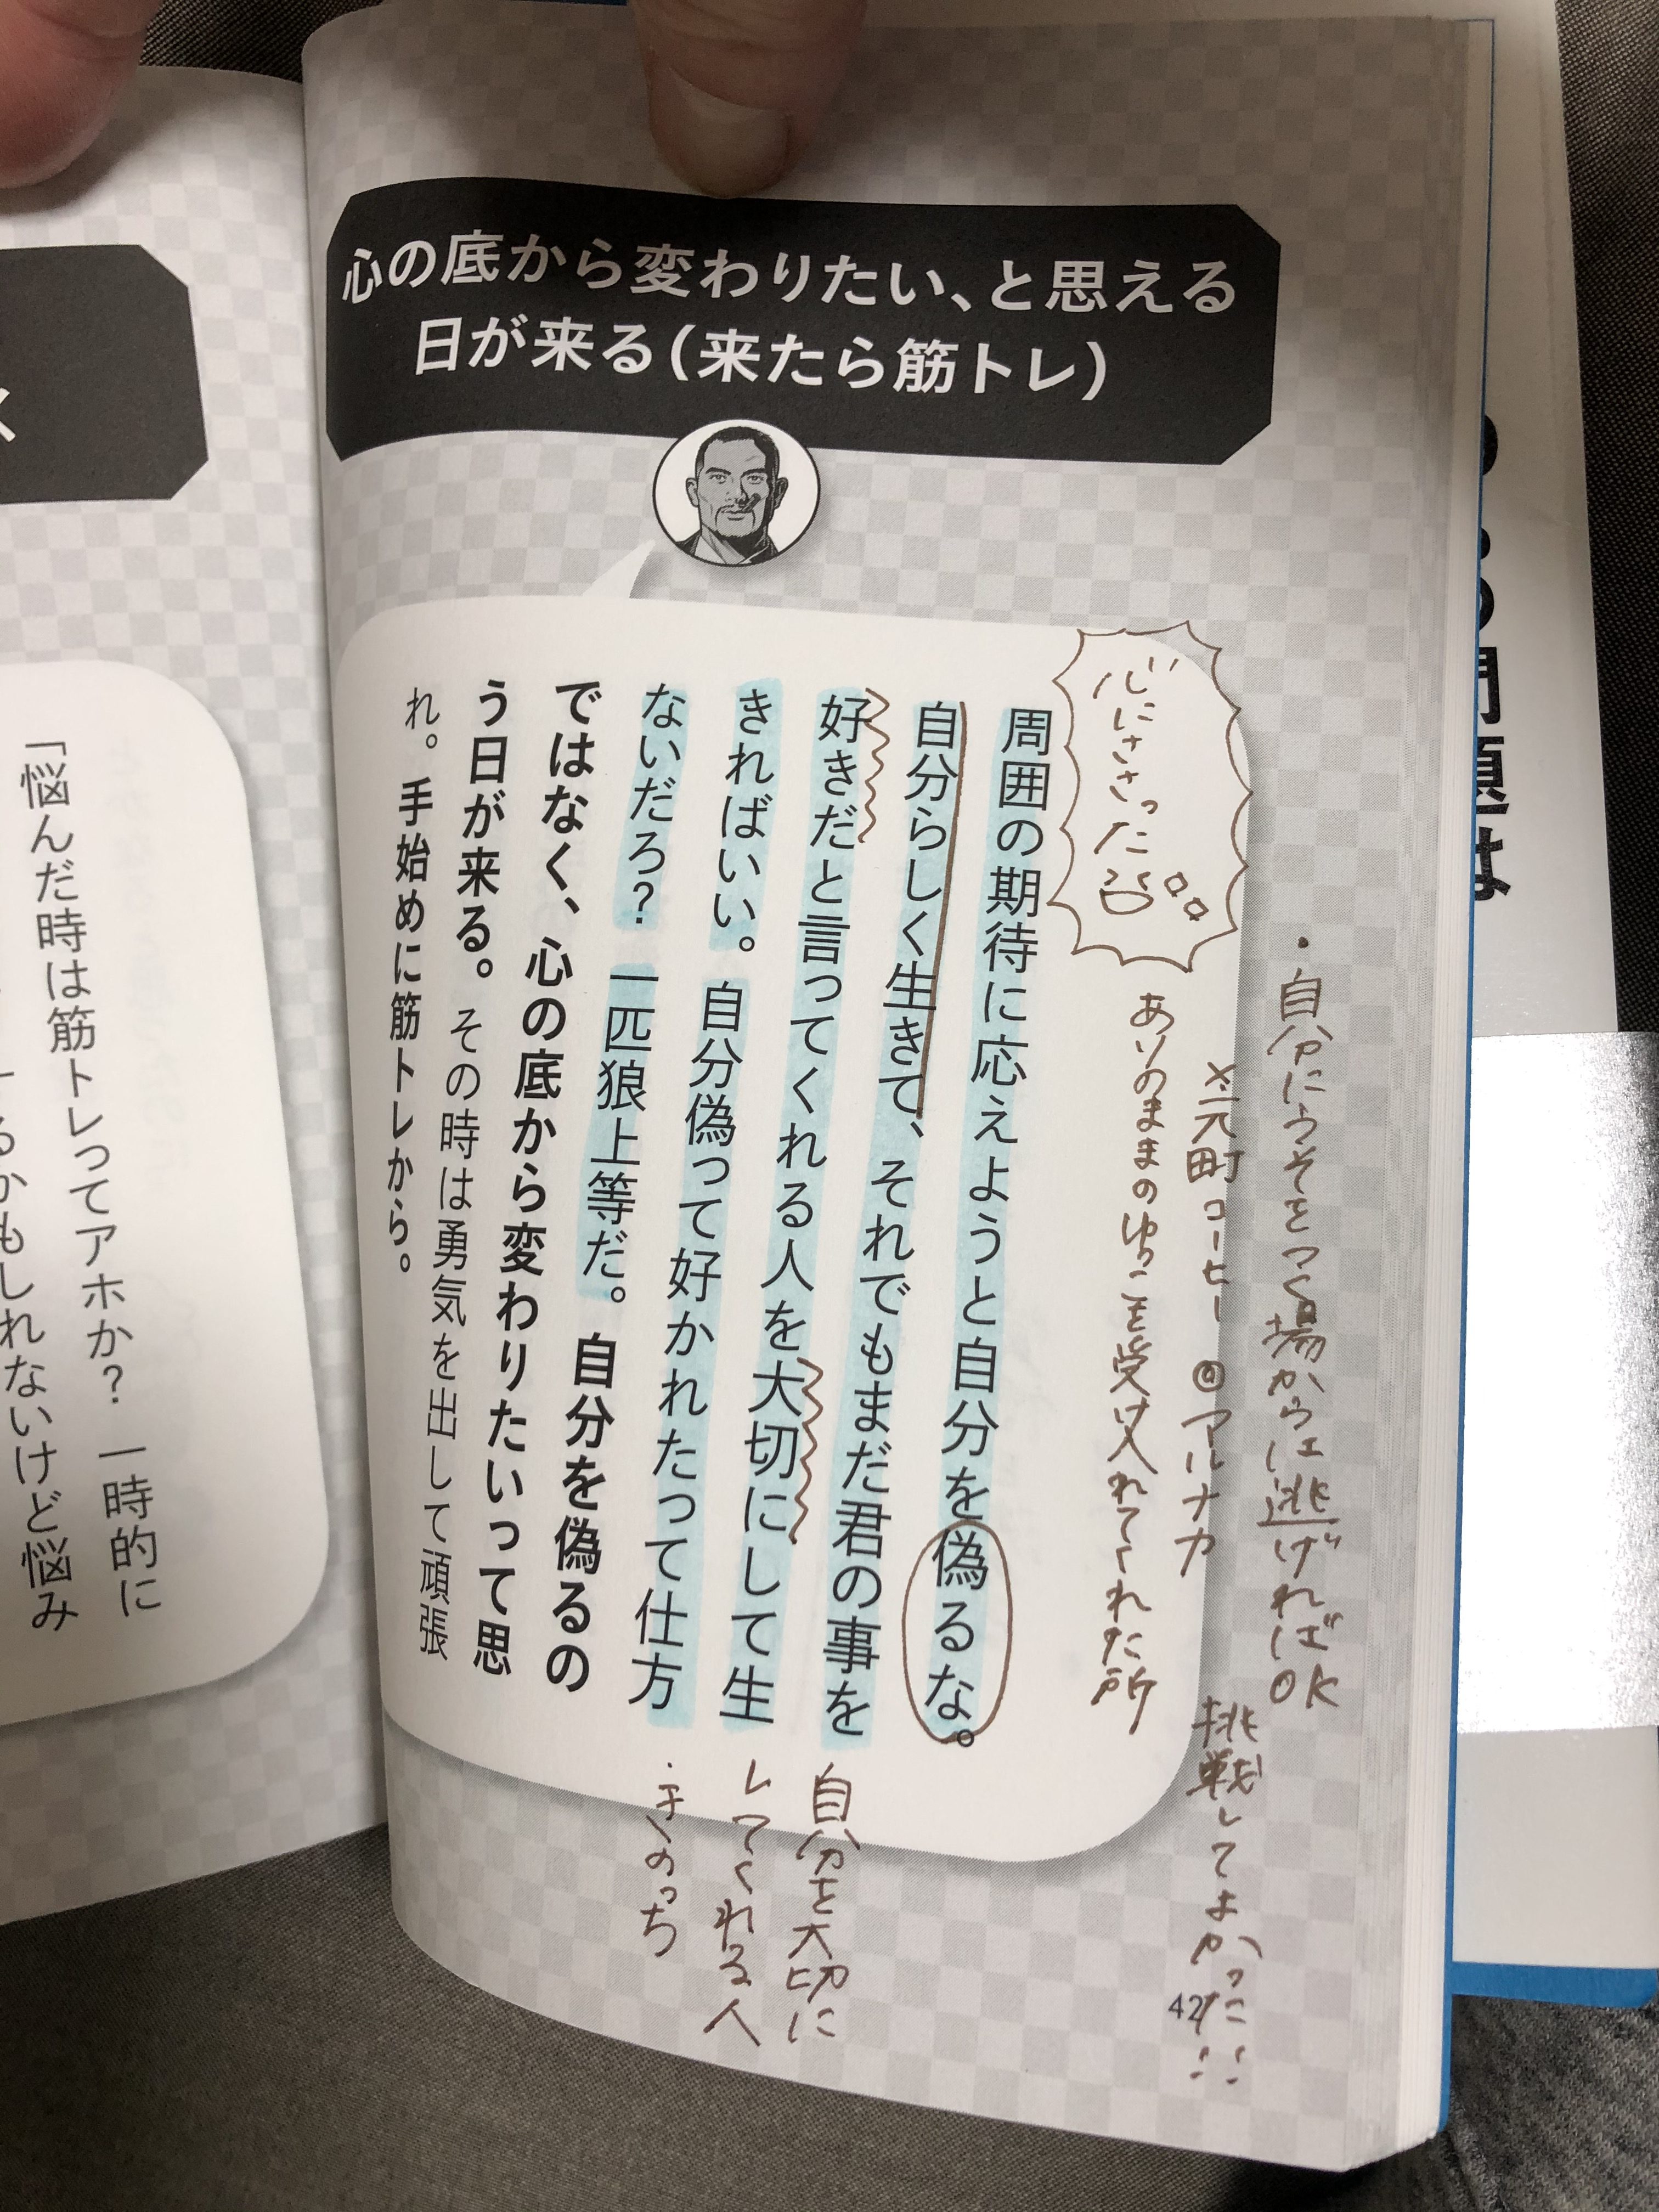 心の底から変わりたい、と思える
日が来る(来たら筋トレ)
・自分にうそをつく場からは逃げればOK
※元町コーヒー @マルナカ
挑戦してよかった!!
心にささった
ありのままのゆうこを受け入れてくれた所
周囲の期待に応えようと自分を偽るな。
自分らしく生きて、それでもまだ君の事を
好きだと言ってくれる人を大切にして生
きればいい。自分偽って好かれたって仕方
ないだろ？一匹狼上等だ。自分を偽るの
ではなく、心の底から変わりたいって思
う日が来る。その時は勇気を出して頑張
れ。手始めに筋トレから。
自分を大切に
してくれる人
42
「悩んだ時は筋トレってアホか？一時的に
るかもしれないけど悩み
問題は